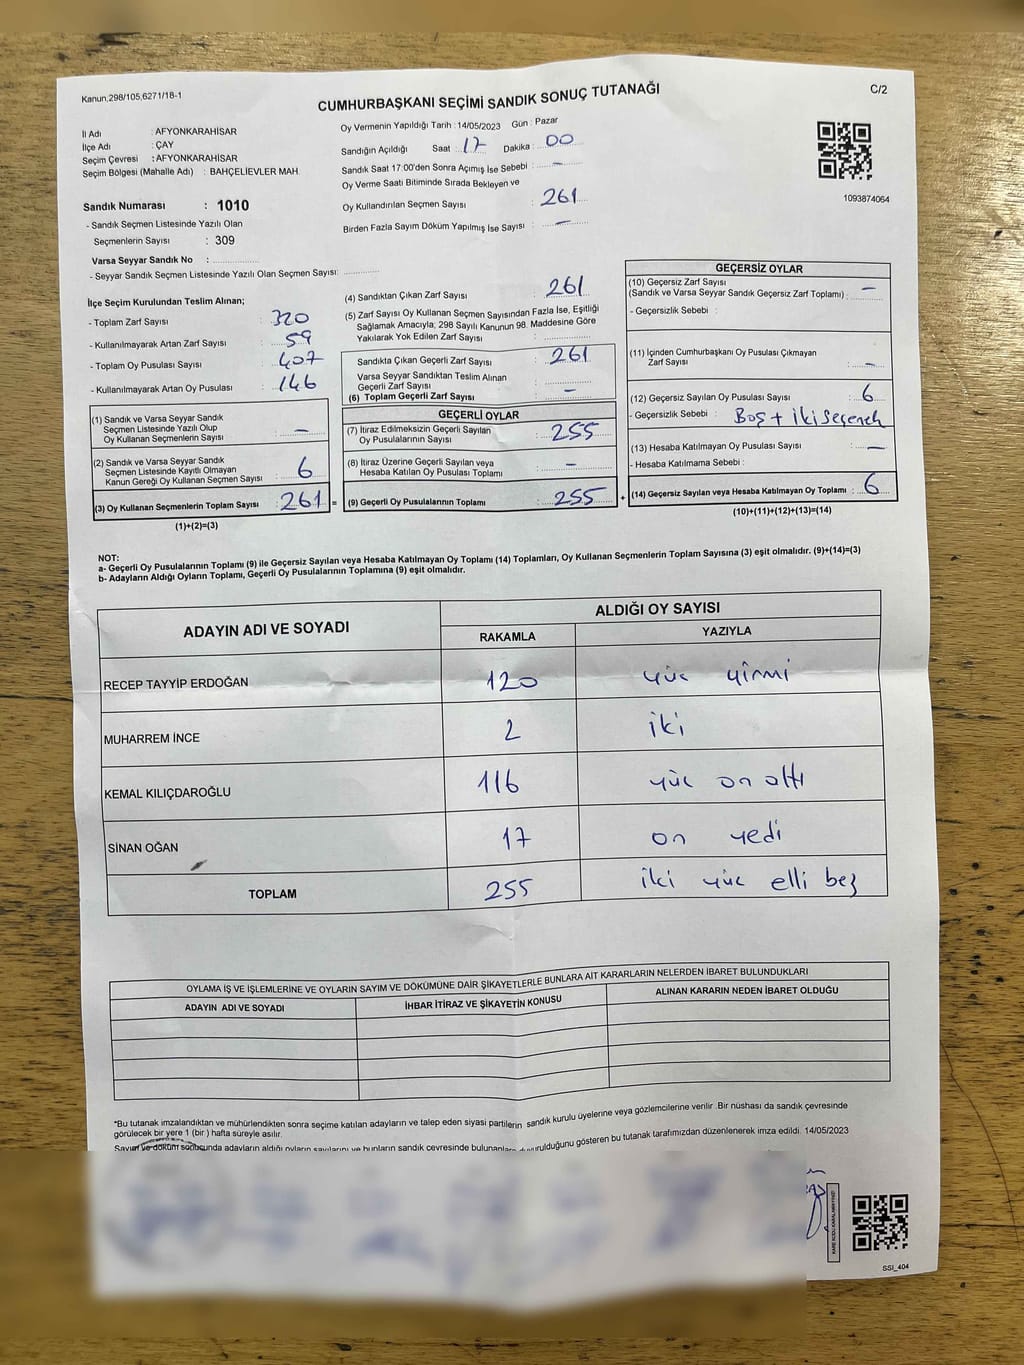 Kanun,298/105,6271/18-1
C/2
CUMHURBAŞKANI SEÇİMİ SANDIK SONUÇ TUTANAĞI
İl Adı : AFYONKARAHİSAR
İlçe Adı : ÇAY
Seçim Çevresi : AFYONKARAHİSAR
Seçim Bölgesi (Mahalle Adı) : BAHÇELİEVLER MAH.
Sandık Numarası : 1010
- Sandık Seçmen Listesinde Yazılı Olan
Seçmenlerin Sayısı : 309
Varsa Seyyar Sandık No :
- Seyyar Sandık Seçmen Listesinde Yazılı Olan Seçmen Sayısı:
Oy Vermenin Yapıldığı Tarih : 14/05/2023 Gün : Pazar
Sandığın Açıldığı Saat : 17 Dakika : 00
Sandık Saat 17:00'den Sonra Açımış İse Sebebi : -
Oy Verme Saati Bitiminde Sırada Bekleyen ve
Oy Kullandırılan Seçmen Sayısı : 261
Birden Fazla Sayım Döküm Yapılmış İse Sayısı : -
1093874064
İlçe Seçim Kurulundan Teslim Alınan;
- Toplam Zarf Sayısı : 320
- Kullanılmayarak Artan Zarf Sayısı : 59
- Toplam Oy Pusulası Sayısı : 407
- Kullanılmayarak Artan Oy Pusulası : 146
(1) Sandık ve Varsa Seyyar Sandık
Seçmen Listesinde Yazılı Olup
Oy Kullanan Seçmenlerin Sayısı : -
(2) Sandık ve Varsa Seyyar Sandık
Seçmen Listesinde Kayıtlı Olmayan
Kanun Gereği Oy Kullanan Seçmen Sayısı : 6
(3) Oy Kullanan Seçmenlerin Toplam Sayısı : 261 =
(1)+(2)=(3)
(4) Sandıktan Çıkan Zarf Sayısı : 261
(5) Zarf Sayısı Oy Kullanan Seçmen Sayısından Fazla İse, Eşitliği
Sağlamak Amacıyla; 298 Sayılı Kanunun 98. Maddesine Göre
Yakılarak Yok Edilen Zarf Sayısı :
Sandıkta Çıkan Geçerli Zarf Sayısı : 261
Varsa Seyyar Sandıktan Teslim Alınan
Geçerli Zarf Sayısı :
(6) Toplam Geçerli Zarf Sayısı : -
GEÇERLİ OYLAR
(7) İtiraz Edilmeksizin Geçerli Sayılan
Oy Pusulalarının Sayısı : 255
(8) İtiraz Üzerine Geçerli Sayılan veya
Hesaba Katılan Oy Pusulası Toplamı : -
(9) Geçerli Oy Pusulalarının Toplamı : 255 +
GEÇERSİZ OYLAR
(10) Geçersiz Zarf Sayısı
(Sandık ve Varsa Seyyar Sandık Geçersiz Zarf Toplamı) : -
- Geçersizlik Sebebi :
(11) İçinden Cumhurbaşkanı Oy Pusulası Çıkmayan
Zarf Sayısı : -
(12) Geçersiz Sayılan Oy Pusulası Sayısı : 6
- Geçersizlik Sebebi : Boş + İki Seçenek
(13) Hesaba Katılmayan Oy Pusulası Sayısı : -
- Hesaba Katılmama Sebebi :
(14) Geçersiz Sayılan veya Hesaba Katılmayan Oy Toplamı : 6
(10)+(11)+(12)+(13)=(14)
NOT:
a- Geçerli Oy Pusulalarının Toplamı (9) ile Geçersiz Sayılan veya Hesaba Katılmayan Oy Toplamı (14) Toplamları, Oy Kullanan Seçmenlerin Toplam Sayısına (3) eşit olmalıdır. (9)+(14)=(3)
b- Adayların Aldığı Oyların Toplamı, Geçerli Oy Pusulalarının Toplamına (9) eşit olmalıdır.
ADAYIN ADI VE SOYADI ALDIĞI OY SAYISI
RAKAMLA YAZIYLA
RECEP TAYYİP ERDOĞAN 120 yüz yirmi
MUHARREM İNCE 2 iki
KEMAL KILIÇDAROĞLU 116 yüz on altı
SİNAN OĞAN 17 on yedi
TOPLAM 255 iki yüz elli beş
OYLAMA İŞ VE İŞLEMLERİNE VE OYLARIN SAYIM VE DÖKÜMÜNE DAİR ŞİKAYETLERLE BUNLARA AİT KARARLARIN NELERDEN İBARET BULUNDUKLARI
ADAYIN ADI VE SOYADI İHBAR İTİRAZ VE ŞİKAYETİN KONUSU ALINAN KARARIN NEDEN İBARET OLDUĞU
*Bu tutanak imzalandıktan ve mühürlendikten sonra seçime katılan adayların ve talep eden siyasi partilerin sandık kurulu üyelerine veya gözlemcilerine verilir .Bir nüshası da sandık çevresinde
görülecek bir yere 1 (bir ) hafta süreyle asılır.
Sayım ve döküm sonucunda adayların aldığı oyların sayılarını ve bunların sandık çevresinde bulunanlara duyurulduğunu gösteren bu tutanak tarafımızdan düzenlenerek imza edildi. 14/05/2023
SSI_404